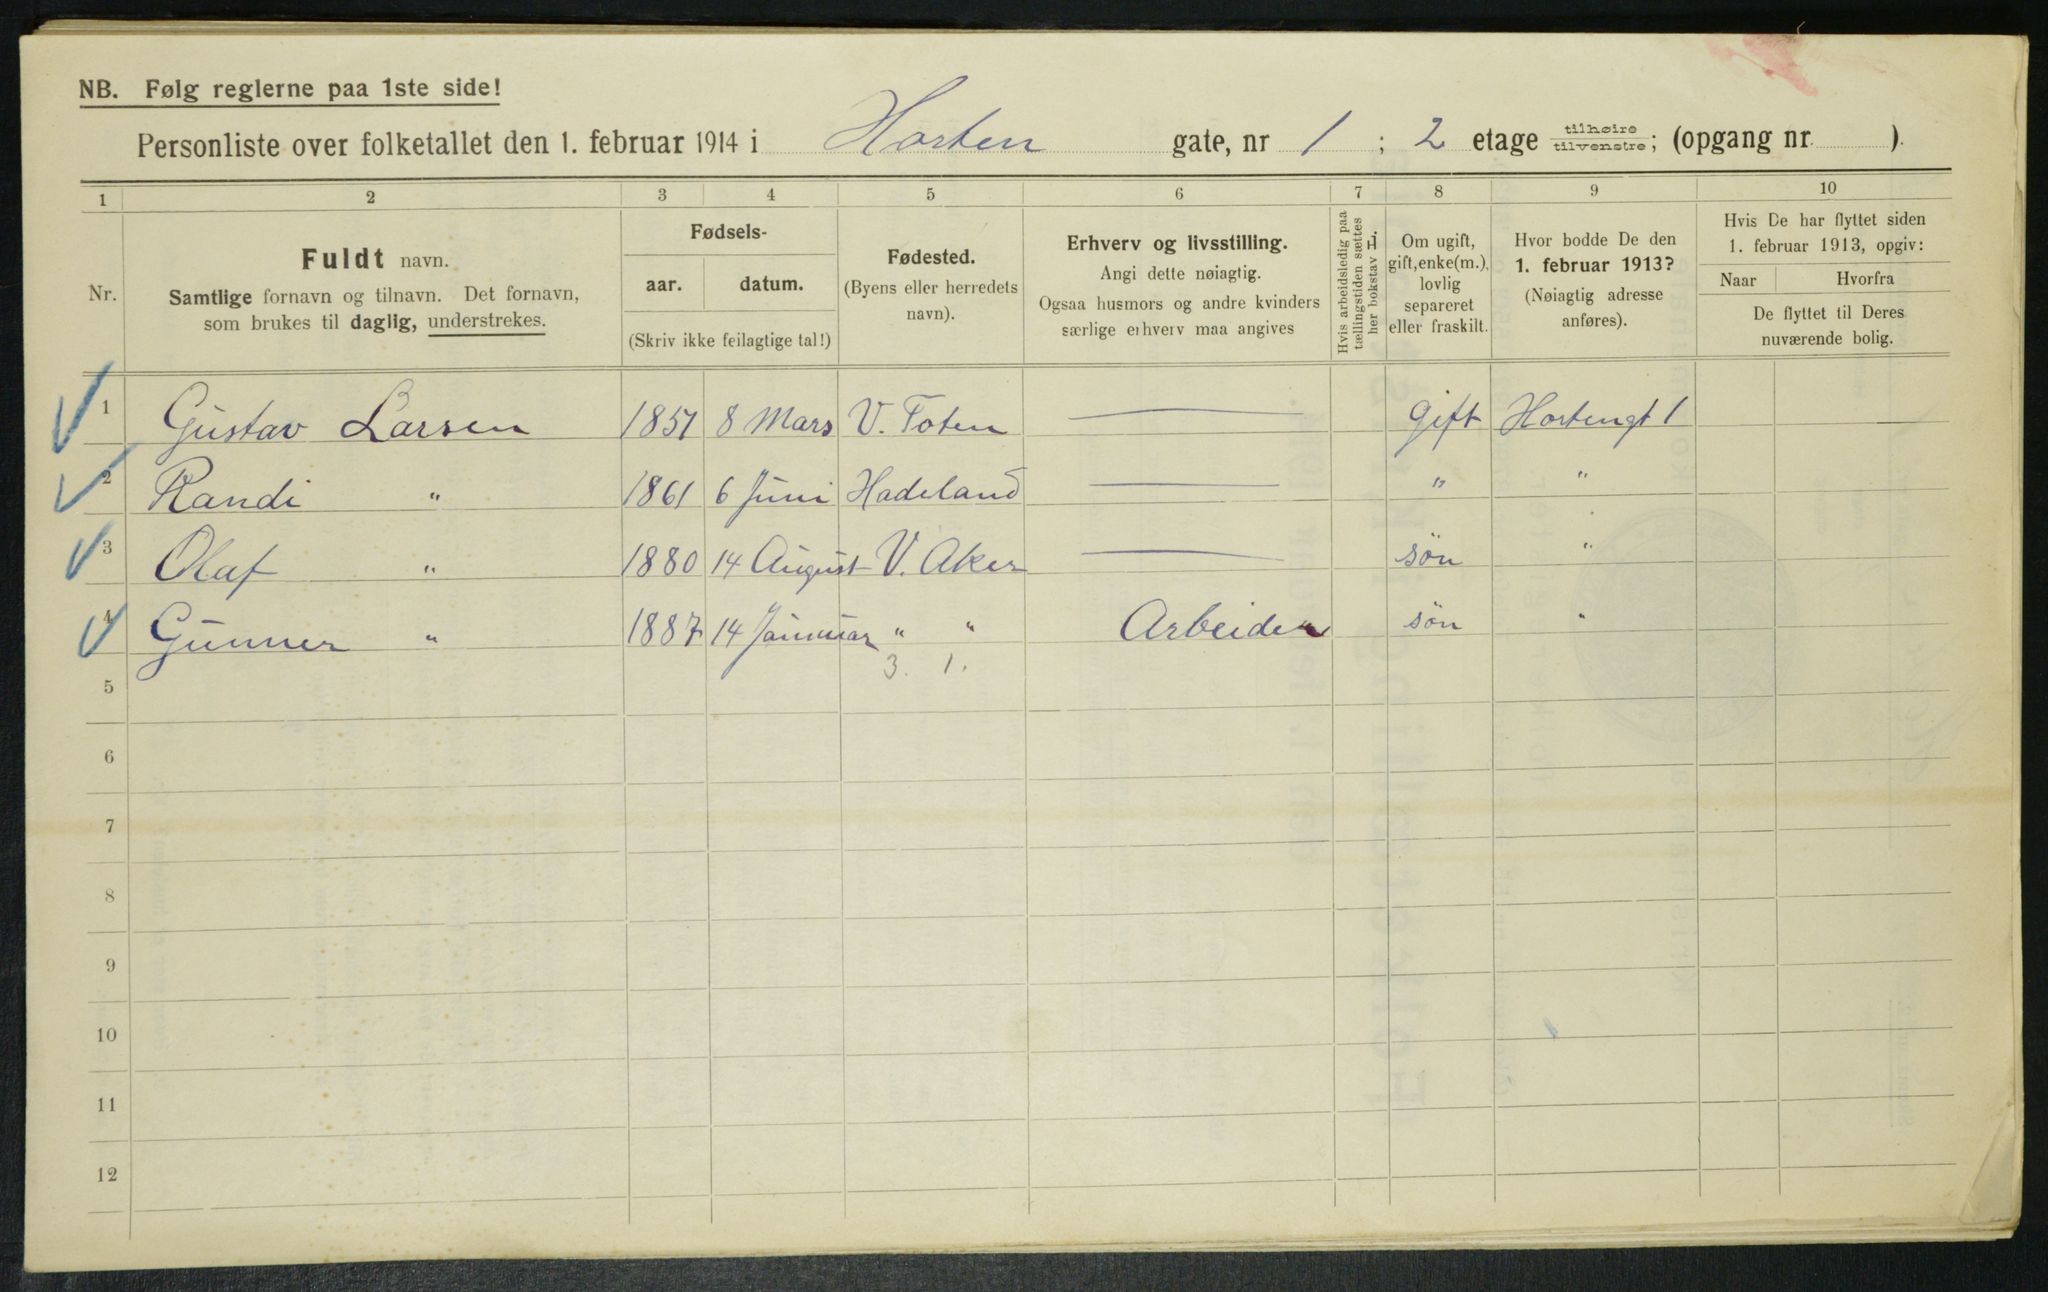 NB. Følg reglerne paa 1ste side!
Personliste over folketallet den 1. februar 1914 i Horten gate, nr 1 ; 2 etage tilhøire tilvenstre ; (opgang nr. ).
1 2 3 4 5 6 7 8 9 10
Nr.
Fuldt navn.
Samtlige fornavn og tilnavn. Det fornavn,
som brukes til daglig, understrekes.
Fødsels-
aar. datum.
(Skriv ikke feilagtige tal!)
Fødested.
(Byens eller herredets
navn).
Erhverv og livsstilling.
Angi dette nøiagtig.
Ogsaa husmors og andre kvinders
særlige erhverv maa angives
Hvis arbeidsledig paa
tællingstiden sættes
her bokstav H.
Om ugift,
gift, enke(m.),
lovlig
separeret
eller fraskilt.
Hvor bodde De den
1. februar 1913?
(Nøiagtig adresse
anføres).
Hvis De har flyttet siden
1. februar 1913, opgiv:
Naar Hvorfra
De flyttet til Deres
nuværende bolig.
1 Gustav Larsen 1851 8 Mars V. Toten — gift Hortengt 1
2 Randi " 1861 6 Juni Hadeland — " "
3 Olaf " 1880 14 August V. Aker — søn "
4 Gunner " 1887 14 Januar " " Arbeider søn "
3. 1.
5
6
7
8
9
10
11
12